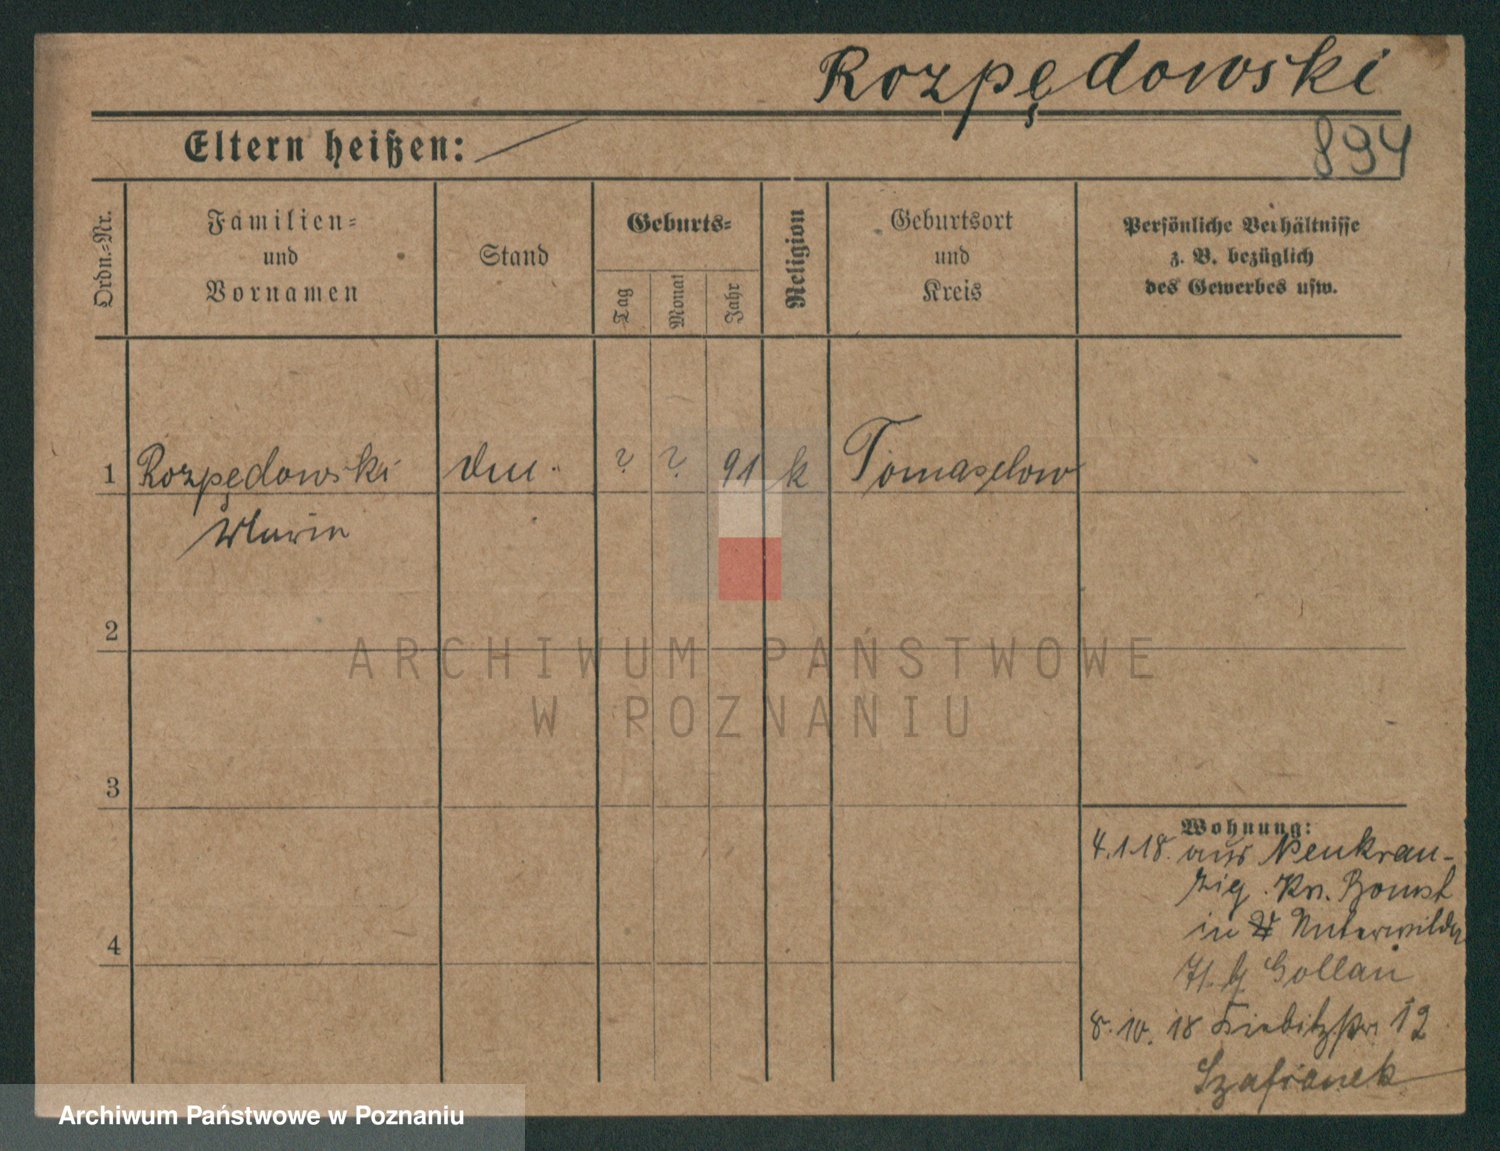 Rozpędowski
894
Eltern heißen:
Ordn.=Nr.
Familien=
und
Vornamen
Stand
Geburts=
Tag
Monat
Jahr
Religion
Geburtsort
und
Kreis
Persönliche Verhältnisse
z. B. bezüglich
des Gewerbes usw.
1 Rozpędowski ? ? 91 k Tomaschow
2
3
4
Wohnung:
4.1.18. aus Neukran-
zig. Kr. Bomst
in Unterwilda
Gollan
8.10.18 Kiebitzstr. 12
Szafranek
ARCHIWUM PAŃSTWOWE
W POZNANIU
Archiwum Państwowe w Poznaniu